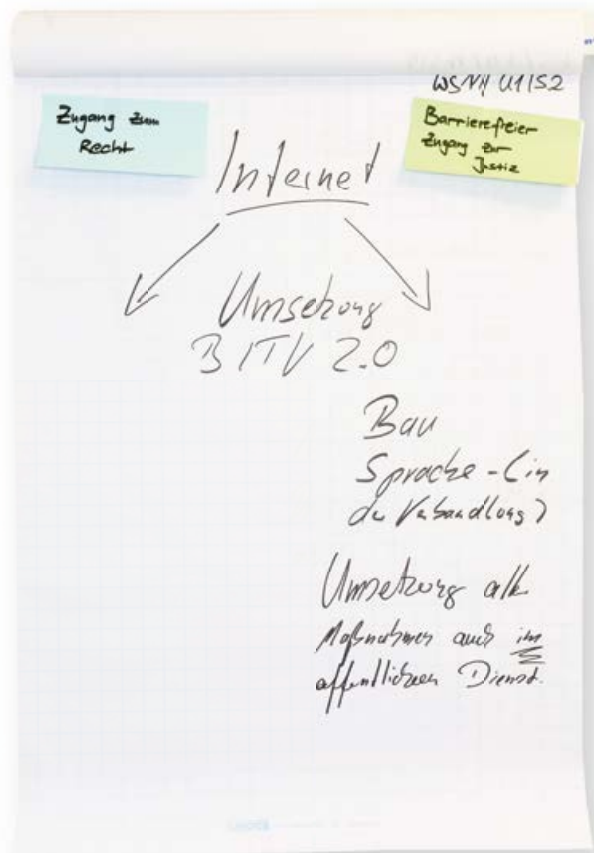 WSNM U1152
Zugang zum
Recht
Barrierefreier
Zugang zur
Justiz
Internet
Umsetzung
BITV 2.0
Bau
Sprache - (in
der Verhandlung)
Umsetzung alle
Maßnahmen auch im
öffentlichen Dienst.